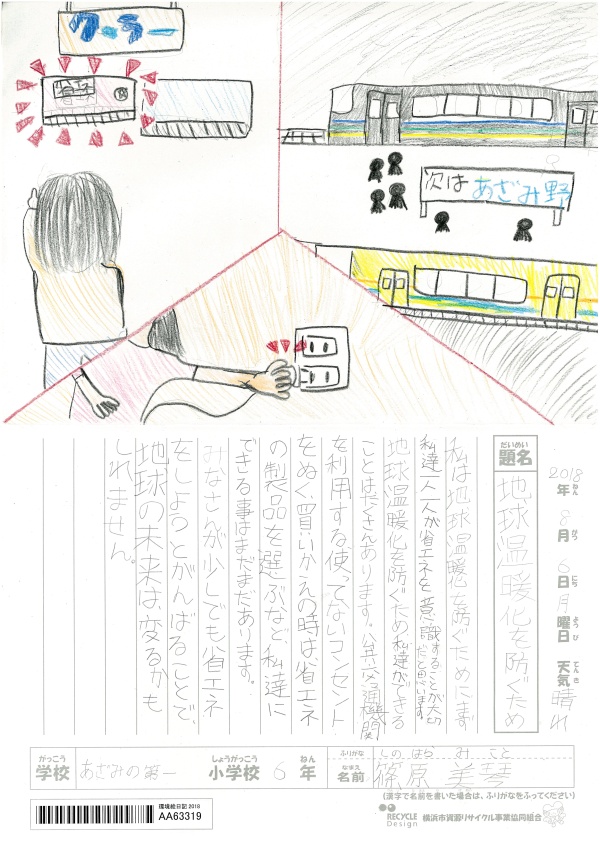 クーラー
省エネ
次はあざみ野
2018年 8月 6日 月曜日 天気 晴れ
ねん がつ にち ようび てんき
だいめい
題名
地球温暖化を防ぐため
私は地球温暖化を防ぐためにまず
私達一人一人が省エネを意識することが大切だと思います。
地球温暖化を防ぐため私達ができる
ことはたくさんあります。公共交通機関
を利用する使ってないコンセント
をぬく、買いかえの時は省エネ
の製品を選ぶなど私達に
できる事はまだまだあります。
みなさんが少しでも省エネ
をしようとがんばることで、
地球の未来は、変るかも
しれません。
がっこう しょうがっこう ねん ふりがな しのはら みこと
学校 あざみの第一 小学校 6年 なまえ 名前 篠原 美琴
(漢字で名前を書いた場合は、ふりがなをふってください)
環境絵日記 2018
AA63319
RECYCLE Design 横浜市資源リサイクル事業協同組合